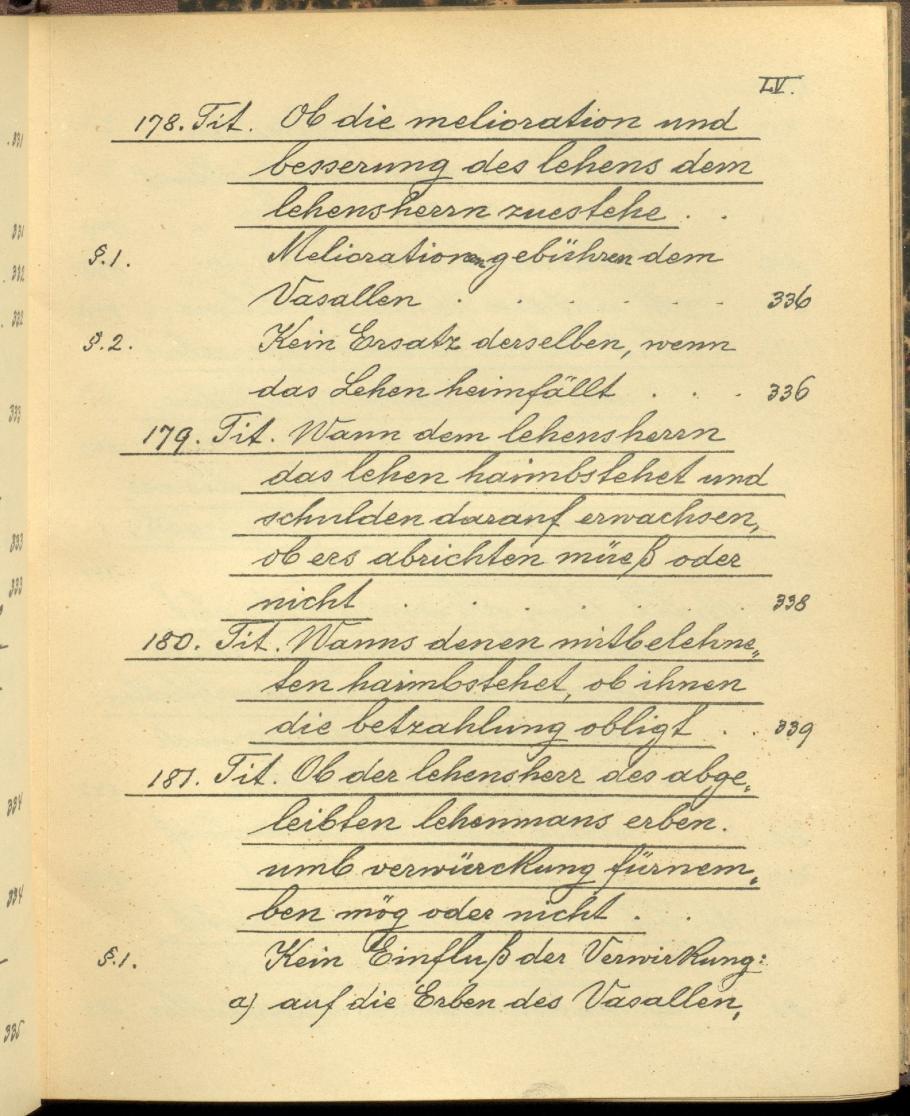 LV.
178. Tit. Ob die melioration und
besserung des lehens dem
lehensherrn zuestehe . .
§.1. Meliorationen gebühren dem
Vasallen . . . . . . . 336
§.2. Kein Ersatz derselben, wenn
das Lehen heimfällt . . . 336
179. Tit. Wann dem lehensherrn
das lehen haimbstehet und
schulden darauf erwachsen,
ob ers abrichten müeß oder
nicht . . . . . . 338
180. Tit. Wanns denen mitbelehne„
ten haimbstehet, ob ihnen
die betzahlung obligt . . 339
181. Tit. Ob der lehensherr des abge„
leibten lehenmans erben.
umb verwürckung fürnem„
ben mög oder nicht . .
§.1. Kein Einfluß der Verwirkung:
a) auf die Erben des Vasallen,
331
331
332
332
333
333
333
334
334
335